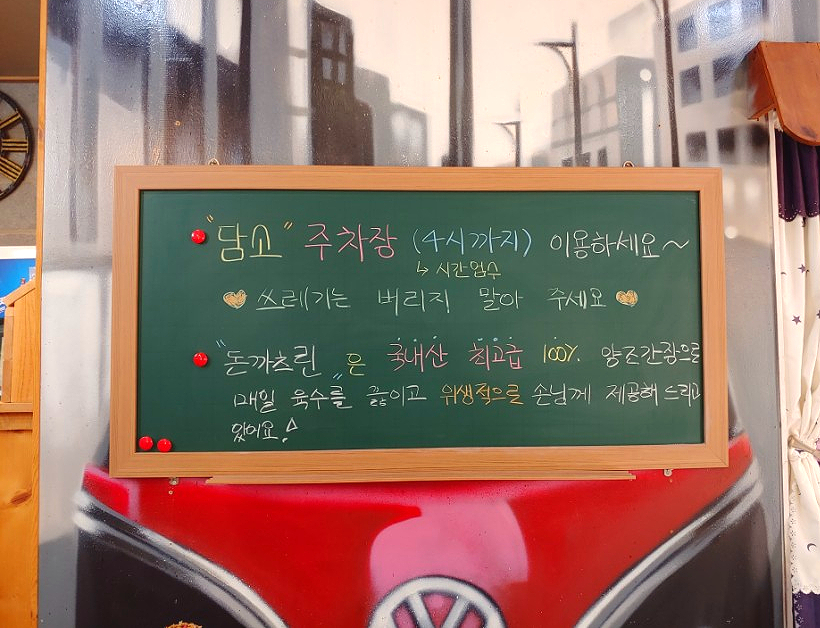 "담소" 주차장 (4시까지) 이용하세요~
↳ 시간엄수
쓰레기는 버리지 말아 주세요
"돈까츠린"은 국내산 최고급 100% 양조간장으로
매일 육수를 끓이고 위생적으로 손님께 제공해 드리고
있어요!